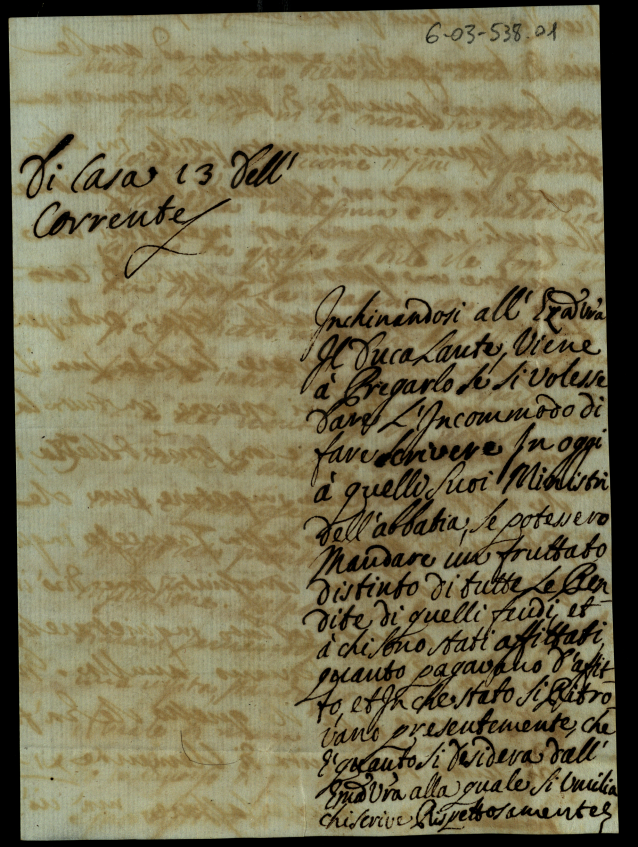 6-03-538.01
Di Casa 13 Dell'
Corrente
Inchinandosi all' Ezã Vrã
Il Duca Lante, Viene
à Pregarlo se si volesse
Dare L'Incommodo di
fare scrivere In oggi
à quelli Suoi Ministri
Dell'abbatia, se potessero
Mandare un fruttato
distinto di tutte Le Ren
dite di quelli feudi, et
à chi sono stati affittati
quanto pagavano d'affit-
to, et In che stato si Ritro
vano presentemente, che
è quanto si desidera dall'
alla quale si Umilia
chi scrive Rispettosamente